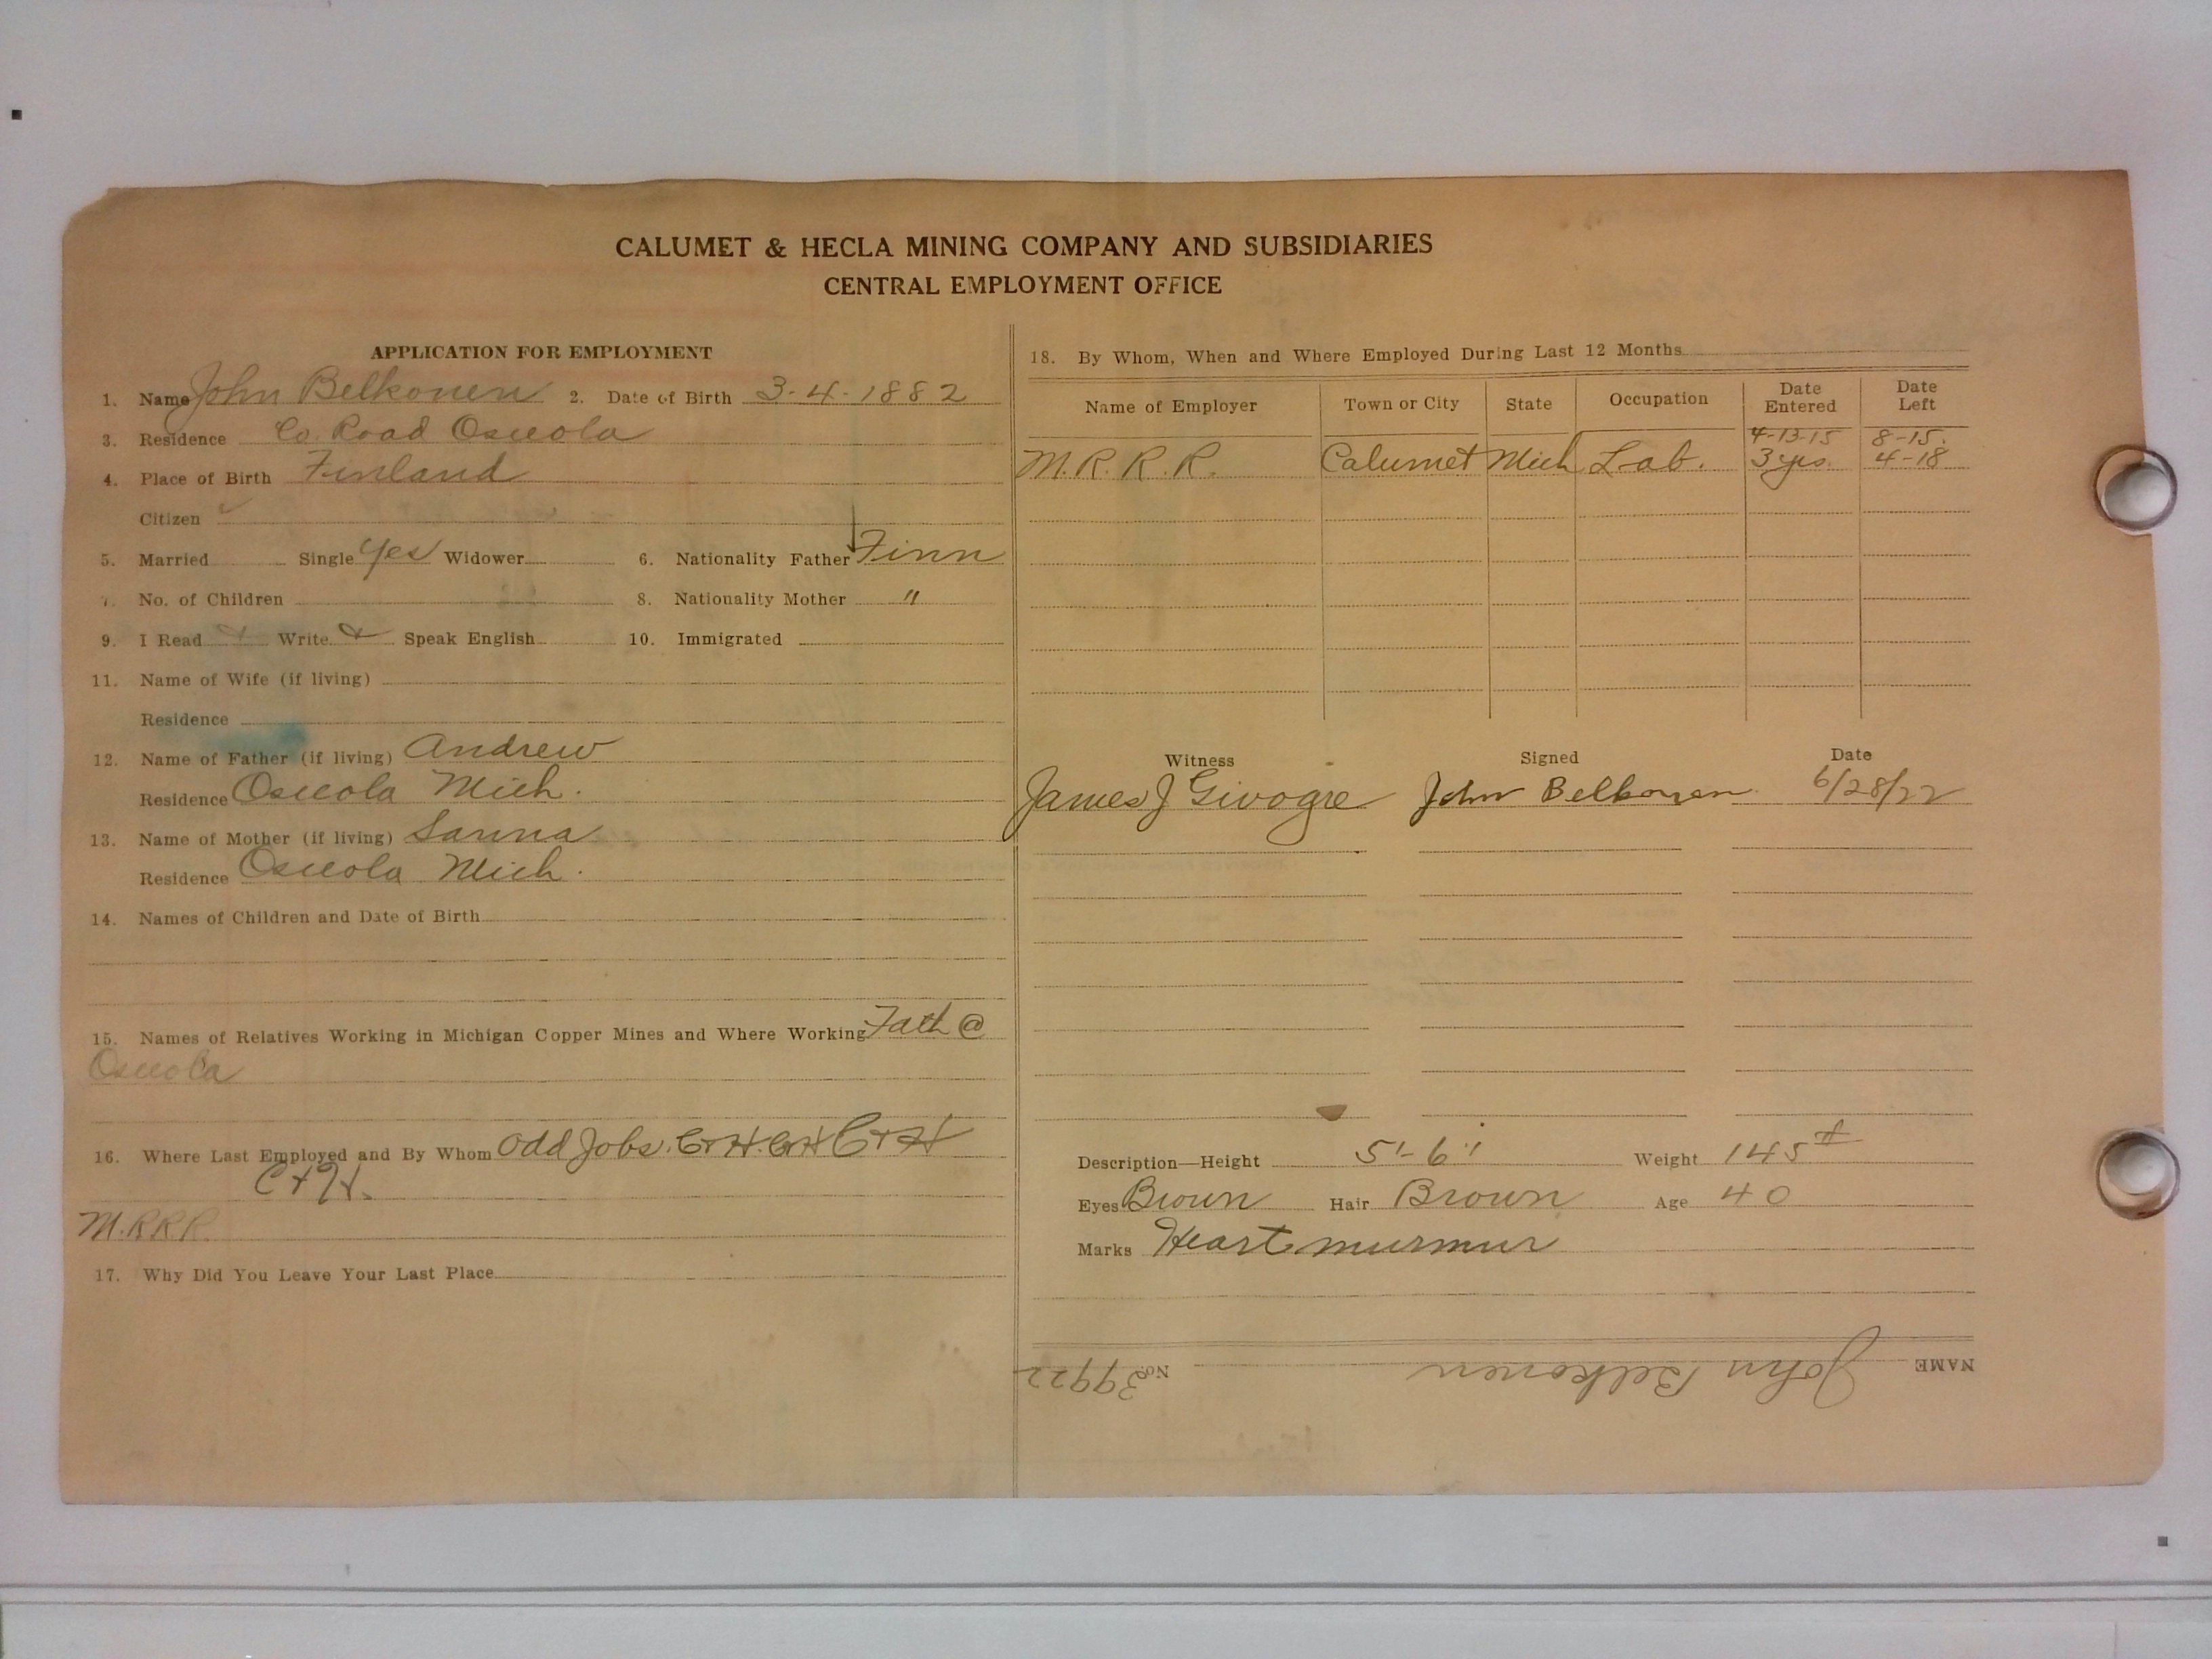 CALUMET & HECLA MINING COMPANY AND SUBSIDIARIES
CENTRAL EMPLOYMENT OFFICE
APPLICATION FOR EMPLOYMENT
1. Name John Belkonen 2. Date of Birth 3-4-1882
3. Residence Co. Road Osceola
4. Place of Birth Finland
Citizen
5. Married Single Yes Widower 6. Nationality Father Finn
7. No. of Children 8. Nationality Mother "
9. I Read Write Speak English 10. Immigrated
11. Name of Wife (if living)
Residence
12. Name of Father (if living) Andrew
Residence Osceola Mich.
13. Name of Mother (if living) Sanna
Residence Osceola Mich.
14. Names of Children and Date of Birth
15. Names of Relatives Working in Michigan Copper Mines and Where Working Fath @
Osceola
16. Where Last Employed and By Whom Odd Jobs. C+H. C+H C+H
C+H.
M.R.R.R.
17. Why Did You Leave Your Last Place
18. By Whom, When and Where Employed During Last 12 Months
Name of Employer Town or City State Occupation Date Entered Date Left
4-13-15 8-15.
M.R.R.R. Calumet Mich Lab. 3 yrs. 4-18
Witness Signed Date
James J Givogre John Belkonen 6/28/22
Description—Height 5'-6" Weight 145#
Eyes Brown Hair Brown Age 40
Marks Heart murmur
NAME John Belkonen No. 39922